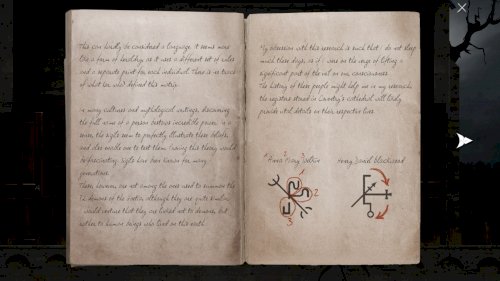 This can hardly be considered a language. It seems more
like a form of heraldry as it uses a different set of rules
and a separate print for each individual. There is no trace
of what or who defined this matrix.
In many cultures and mythological writings, discovering
the full name of a person bestows incredible power. In a
sense, the sigils seem to perfectly illustrate these beliefs,
and also enable one to test them. Proving this theory would
be fascinating. Sigils have been known for many
generations.
These, however, are not among the ones used to summon the
72 demons of the Goetia, although they are quite similar.
I would venture that they are linked not to demons, but
rather to human beings who lived on this earth.
My obsession with this research is such that I do not sleep
much these days, as if I were on the verge of lifting a
significant part of the veil on our consciousness.
The history of these people might help me in my research,
the registers stored in Coventry's cathedral will likely
provide vital details on their respective lives.
1 2 3
Anna Mary
Henry Daniel Blackwood
1
2
3